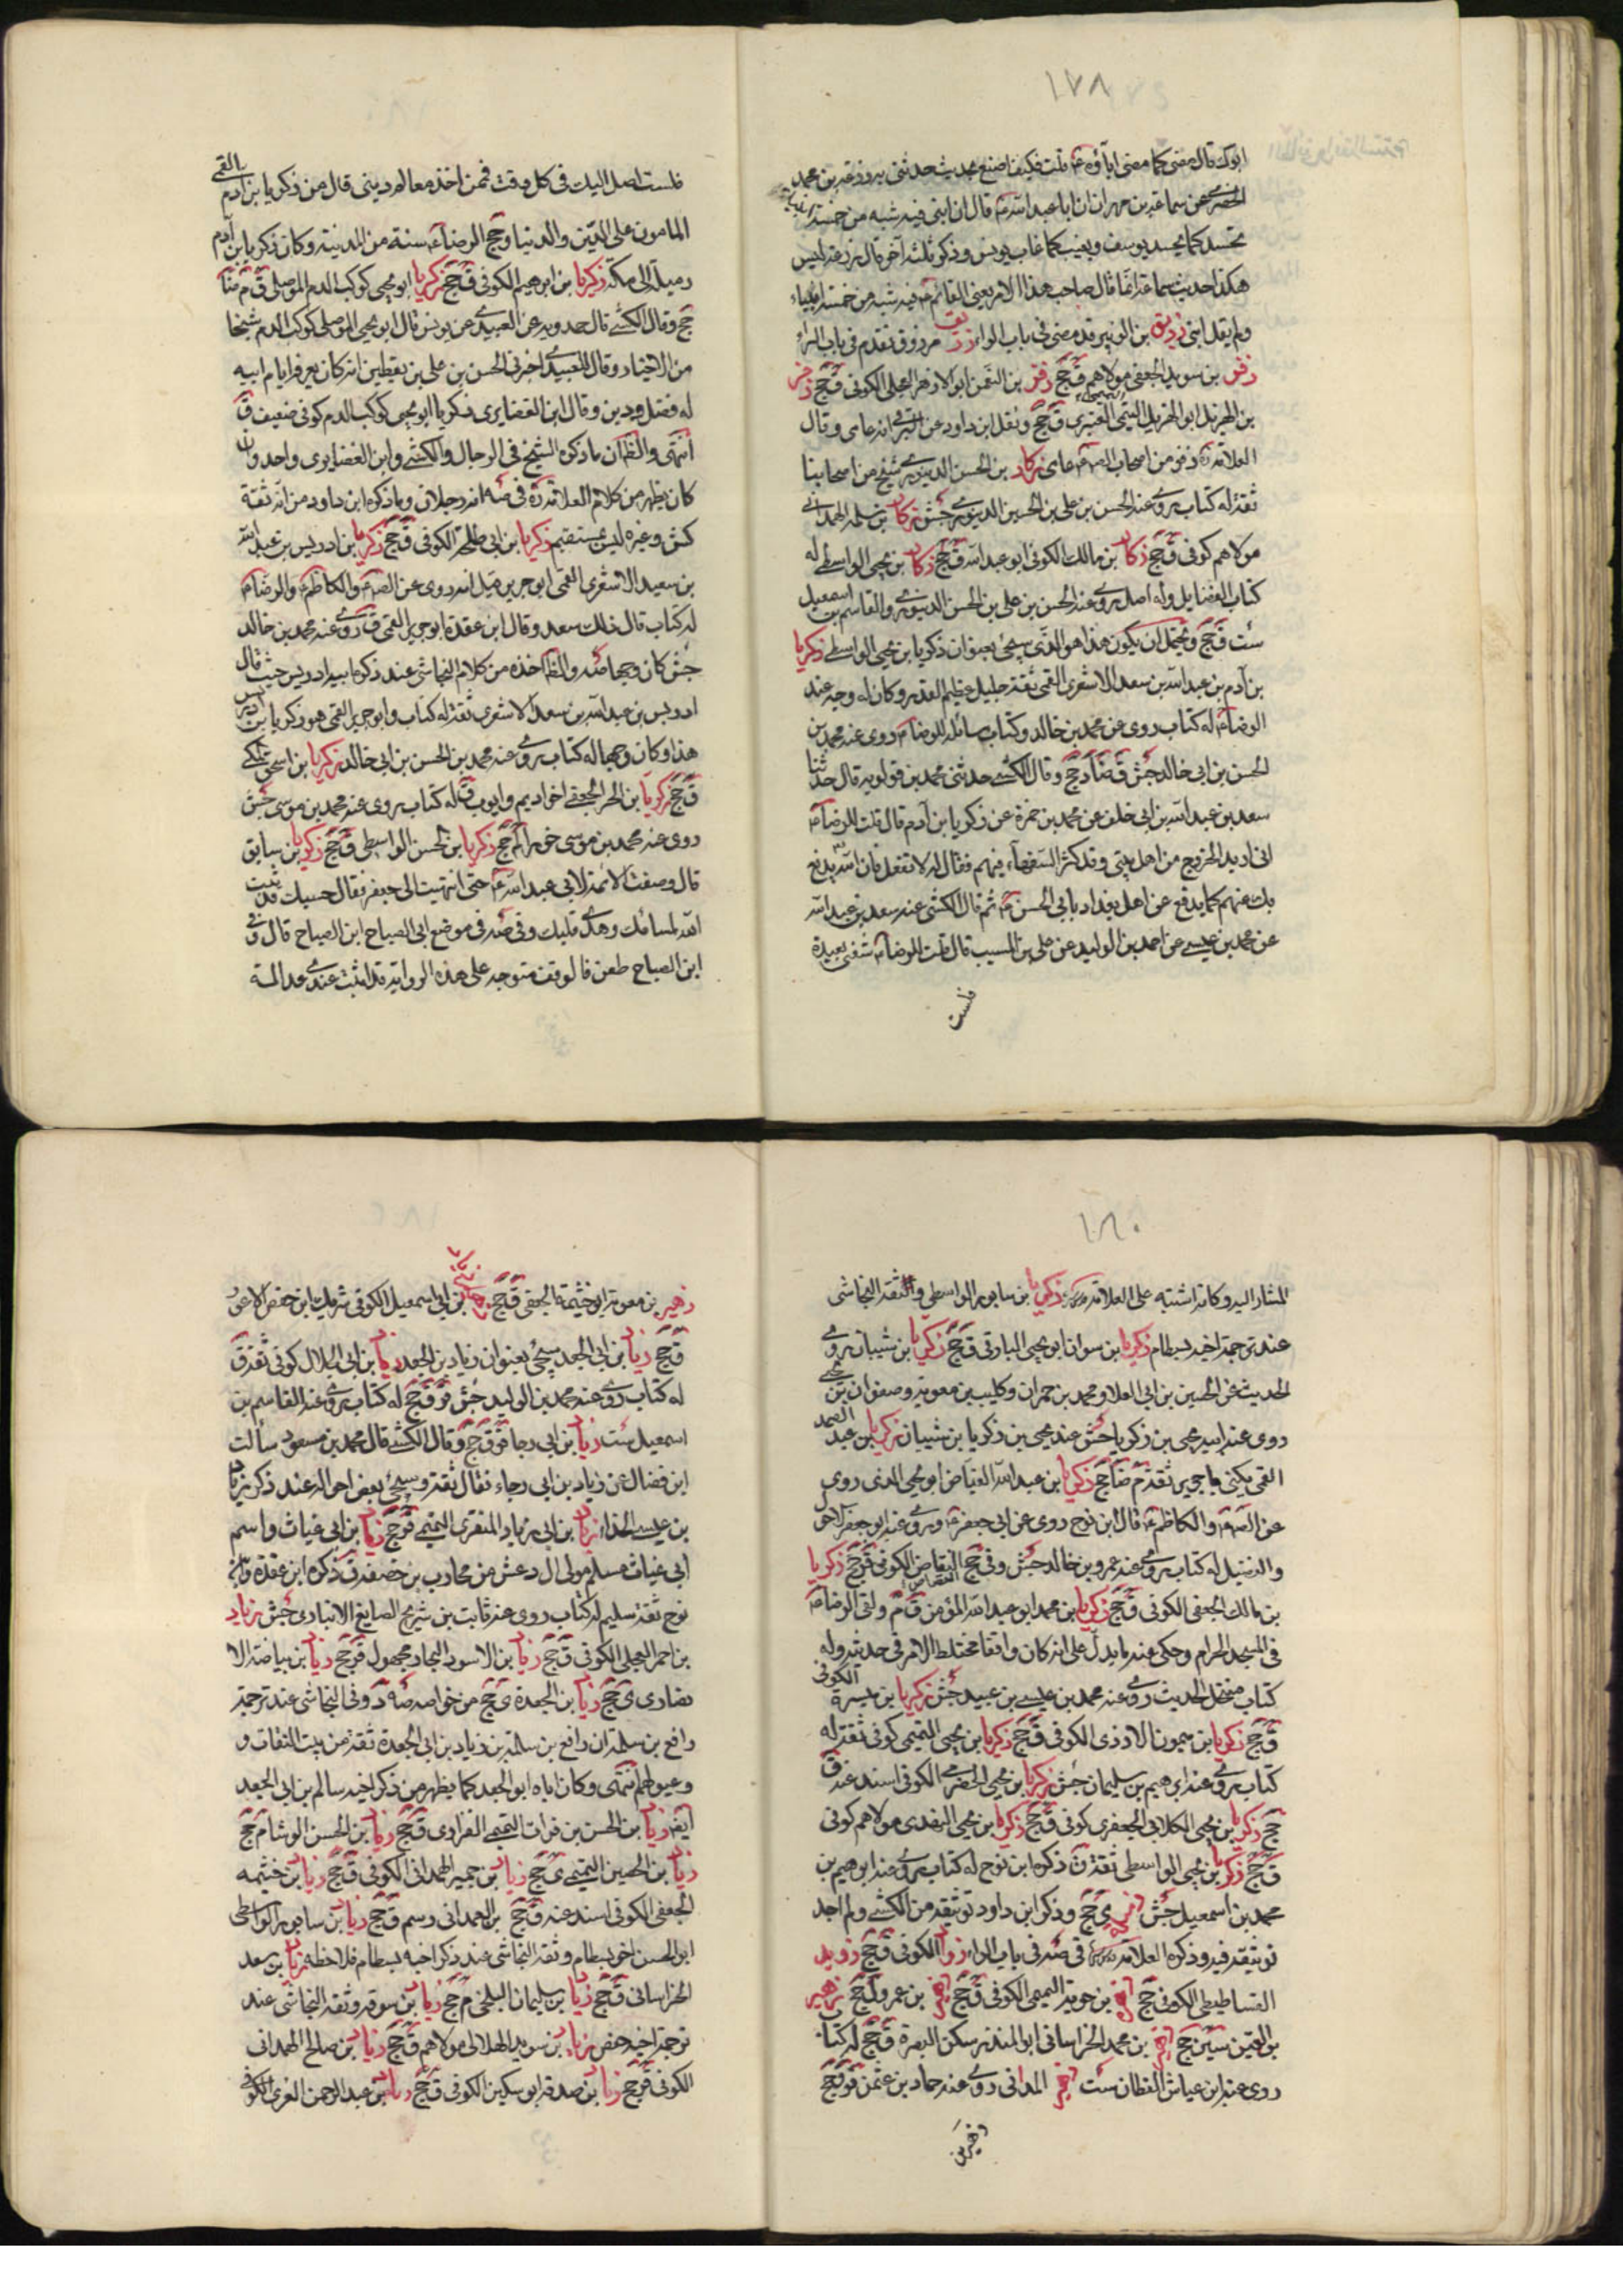 ١٧٨
ابوك قال مضى كما مضى اباؤه ع قلت فكيف اصنع بحديث حدثنى به زرعة بن محمد
الحضرمى عن سماعة بن مهران ان ابا عبد الله ع قال ان ابنى فيه شبه من خمسة انبياء
يحسد كما يحسد يوسف ويغيب كما غاب يونس وذكر ثلثة اخر قال زرعة ليس
هكذا حديث سماعة انما قال صاحب هذا الامر يعنى القائم ع فيه شبه من خمسة انبياء
ولم يقل ابنى زريق بن الزبير قد مضى فى باب الراء مرزوق تقدم فى باب الراء
زفر بن سويد الجعفى مولاهم ق جخ زفر بن النعمن ابو الازهر العجلى الكوفى ق جخ زفر
بن الهزيل ابو الهزيل التيمى العنبرى ق جخ ونقل ابن داود عن البرقى انه عامى وقال
العلامة ره زفر من اصحاب الص ع عامى زكار بن الحسن الدينورى شيخ من اصحابنا
ثقة له كتاب يروى عنه الحسن بن على بن الحسين الدينورى جش زكار بن سلمة الهمدانى
مولاهم كوفى ق جخ زكار بن مالك الكوفى ابو عبد الله ق جخ زكار بن يحيى الواسطى له
كتاب الفضايل وله اصل روى عنه الحسن بن على بن الحسن الدينورى والقاسم بن اسمعيل
ست ق جخ ويحتمل ان يكون هذا هو الذى سيجئ بعنوان زكريا بن يحيى الواسطى زكريا
بن آدم بن عبد الله بن سعد الاشعرى القمى ثقة جليل عظيم القدر وكان له وجه عند
الرضا ع له كتاب روى عن محمد بن خالد وكتاب مسائله للرضا ع روى عنه محمد بن
الحسن بن ابى خالد جش ق ضا د جخ وقال الكشى حدثنى محمد بن قولويه قال حدثنا
سعد بن عبد الله بن ابى خلف عن محمد بن حمزة عن زكريا بن آدم قال قلت للرضا ع
انى اريد الخروج من اهل بيتى وقد كثر السفهاء فيهم فقال له لا تفعل فان الله يدفع
بك عنهم كما يدفع عن اهل بغداد بابى الحسن ع ثم قال الكشى عنه سعد بن عبد الله
عن محمد بن عيسى عن احمد بن الوليد عن على بن المسيب قال قلت للرضا ع شقتى بعيدة
فلست
فلست اصل اليك فى كل وقت فممن اخذ معالم دينى قال من زكريا بن آدم القمى
المامون على الدين والدنيا وحج الرضا ع سنة من المدينة وكان زكريا بن آدم
زميله الى مكة زكريا بن ابرهيم الكوفى ق جخ زكريا ابو يحيى كوكب الدم الموصلى ق م ضا
جخ وقال الكشى قال حدويه عن العبيدى عن يونس قال ابو يحيى الموصلى كوكب الدم شيخا
من الاخيار وقال العبيدى اخبرنى الحسن بن على بن يقطين انه كان يعرفه ايام ابيه
له فضل ودين وقال ابن الغضايرى زكريا ابو يحيى كوكب الدم كوفى ضعيف ق
انتهى والظ ان ما ذكره الشيخ فى الرجال والكشى وابن الغضايرى واحد وان
كان يظهر من كلام العلامة ره فى صه انه رجلان وما ذكره ابن داود من انه ثقة
كش وغيره ليس بمستقيم زكريا بن ابى طلحة الكوفى ق جخ زكريا بن ادريس بن عبد الله
بن سعيد الاشعرى القمى ابو جرير قيل انه روى عن الص ع والكاظم ع والرضا ع
له كتاب قال ذلك سعد وقال ابن عقدة ابو جرير القمى ق روى عنه محمد بن خالد
جش كان وجها صه والظ اخذه من كلام النجاشى عند ذكر ابيه ادريس حيث قال
ادريس بن عبد الله بن سعد الاشعرى ثقة له كتاب وابو جرير القمى هو زكريا بن ادريس
هذا وكان وجها له كتاب يروى عنه محمد بن الحسن بن ابى خالد زكريا بن اسحق
ق جخ زكريا بن الحر الجعفى اخو اديم وايوب ق له كتاب يروى عنه محمد بن موسى جش
روى عنه محمد بن موسى خوراء لم جخ زكريا بن الحسن الواسطى ق جخ زكريا بن سابق
قال وصفت الائمة لابى عبد الله ع حتى انتهيت الى جعفر فقال حسبك قد ثبت
الله لسانك وهدى قلبك وفى صه فى موضع ابى الصباح ابن الصباح قال وفى
ابن الصباح طعن فالوقف متوجه على هذه الرواية قد اثبت عندى عدالة
١٨٠
المشار اليه وكانه اشتبه على العلامة زكريا بن سابور الواسطى وثقه النجاشى
عند ترجمة اخيه بسطام زكريا بن سوان ابو يحيى البارقى ق جخ زكريا بن شيبان يروى
الحديث عن الحسين بن ابى العلا ومحمد بن حمران وكليب بن معوية وصفوان بن يحيى
روى عنه ابنه يحيى بن زكريا جش عند يحيى بن زكريا بن شيبان زكريا بن عبد الصمد
القمى يكنى بابى جرير ثقة م ضا جخ زكريا بن عبد الله الفياض ابو يحيى الذى روى
عن الص ع والكاظم ع قال ابن نوح روى عن ابى جعفر ع وروى عنه ابو جعفر الاحول
والفضيل له كتاب يروى عنه عمرو بن خالد جش وفى جخ النقاض الكوفى ق ر جخ زكريا
بن مالك الجعفى الكوفى ق جخ زكريا بن محمد ابو عبد الله المؤمن ق م ولقى الرضا ع
فى المسجد الحرام وحكى عنه ما يدل على انه كان واقفا مختلط الامر فى حديثه وله
كتاب منتحل الحديث روى عنه محمد بن عيسى بن عبيد جش زكريا بن ميسرة الكوفى
ق جخ زكريا بن ميمون الازدى الكوفى ق جخ زكريا بن يحيى التميمى كوفى ثقة له
كتاب يروى عنه ابرهيم بن سليمان جش زكريا بن يحيى الحضرمى الكوفى اسند عنه ق
جخ زكريا بن يحيى الكلابى الجعفرى كوفى ق جخ زكريا بن يحيى النهدى مولاهم كوفى
ق جخ زكريا بن يحيى الواسطى ثقة ق ذكره ابن نوح له كتاب يروى عنه ابرهيم بن
محمد بن اسمعيل جش ى جخ وذكر ابن داود توثيقه من الكشى ولم اجد
توثيقه فيه وذكره العلامة فى صه فى باب الراء الكوفى ق جخ زويد
الفساطيطى الكوفى جخ بن حوية التميمى الكوفى ق جخ بن عمرو ل جخ زهير
بن القين سين جخ بن محمد الخراسانى ابو المنذر سكن البصرة ق جخ له كتاب
روى عنه ابن عياش القطان ست المدائنى روى عنه حماد بن عثمن ق ر ق جخ
زهير بن
زهير بن معوية ابو خيثمة الجعفى ق جخ بن ابى اسمعيل الكوفى شريك ابن حفص الاعور
ق جخ زياد بن ابى الجعد سيجئ بعنوان زياد بن الجعد زياد بن ابى الحلال كوفى ثقة ق
له كتاب روى عنه محمد بن الوليد جش ق ر ق جخ له كتاب يروى عنه القاسم بن
اسمعيل ست زياد بن ابى رجا ق ر ق جخ وقال الكشى قال محمد بن مسعود سألت
ابن فضال عن زياد بن ابى رجاء فقال ثقة وسيجئ بعض احواله عند ذكر زياد
بن عيسى الحذاء زياد بن ابى زياد المنقرى التميمى ق ر جخ زياد بن ابى غياث واسم
ابى غياث مسلم مولى ال دعش من محارب بن خصفة ق ذكره ابن عقدة وابن
نوح ثقة سليم له كتاب روى عنه ثابت بن شريح الصايغ الانبارى جش زياد
بن احمر العجلى الكوفى ق جخ زياد بن الاسود النجار مجهول ق ر جخ زياد بن بياضة الا
نصارى ى جخ زياد بن الجعدة ى جخ من خواصه صه د وفى النجاشى عند ترجمة
رافع بن سلمة ان رافع بن سلمة بن زياد بن ابى الجعدة ثقة من بيت الثقات و
وعيونهم انتهى وكان اباه ابو الجعد كما يظهر من ذكر اخيه سالم بن ابى الجعد
ايض زياد بن الحسن بن فرات التميمى الفزارى ق جخ زياد بن الحسن الوشا م جخ
زياد بن الحصين التميمى ى جخ زياد بن حمير الهمدانى الكوفى ق جخ زياد بن خيثمه
الجعفى الكوفى اسند عنه ق جخ بن الهمدانى رسم ق جخ زياد بن سابور الواسطى
ابو الحسن اخو بسطام وثقه النجاشى عند ذكر اخيه بسطام فلاحظه زياد بن سعد
الخراسانى ق جخ زياد بن سليمان البلخى م جخ زياد بن سوقه وثقه النجاشى عند
ترجمة اخيه حفص زياد بن سويد الهلالى مولاهم ق جخ زياد بن صالح الهمدانى
الكوفى ق ر جخ زياد بن صدقة ابو سكين الكوفى ق جخ زياد بن عبد الرحمن الغرى الكوفى